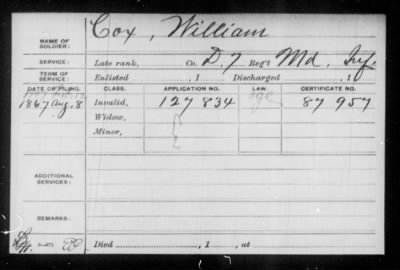 Cox, William
NAME OF SOLDIER:
SERVICE: Late rank, Co. D. 7 Reg't Md. Inf.
TERM OF SERVICE: Enlisted , 1 Discharged , 1
DATE OF FILING. CLASS. APPLICATION NO. LAW. CERTIFICATE NO.
1867 Aug. 8 Invalid, 127 834 87 957
Widow,
Minor,
ADDITIONAL SERVICES:
REMARKS:
Died , 1 , at